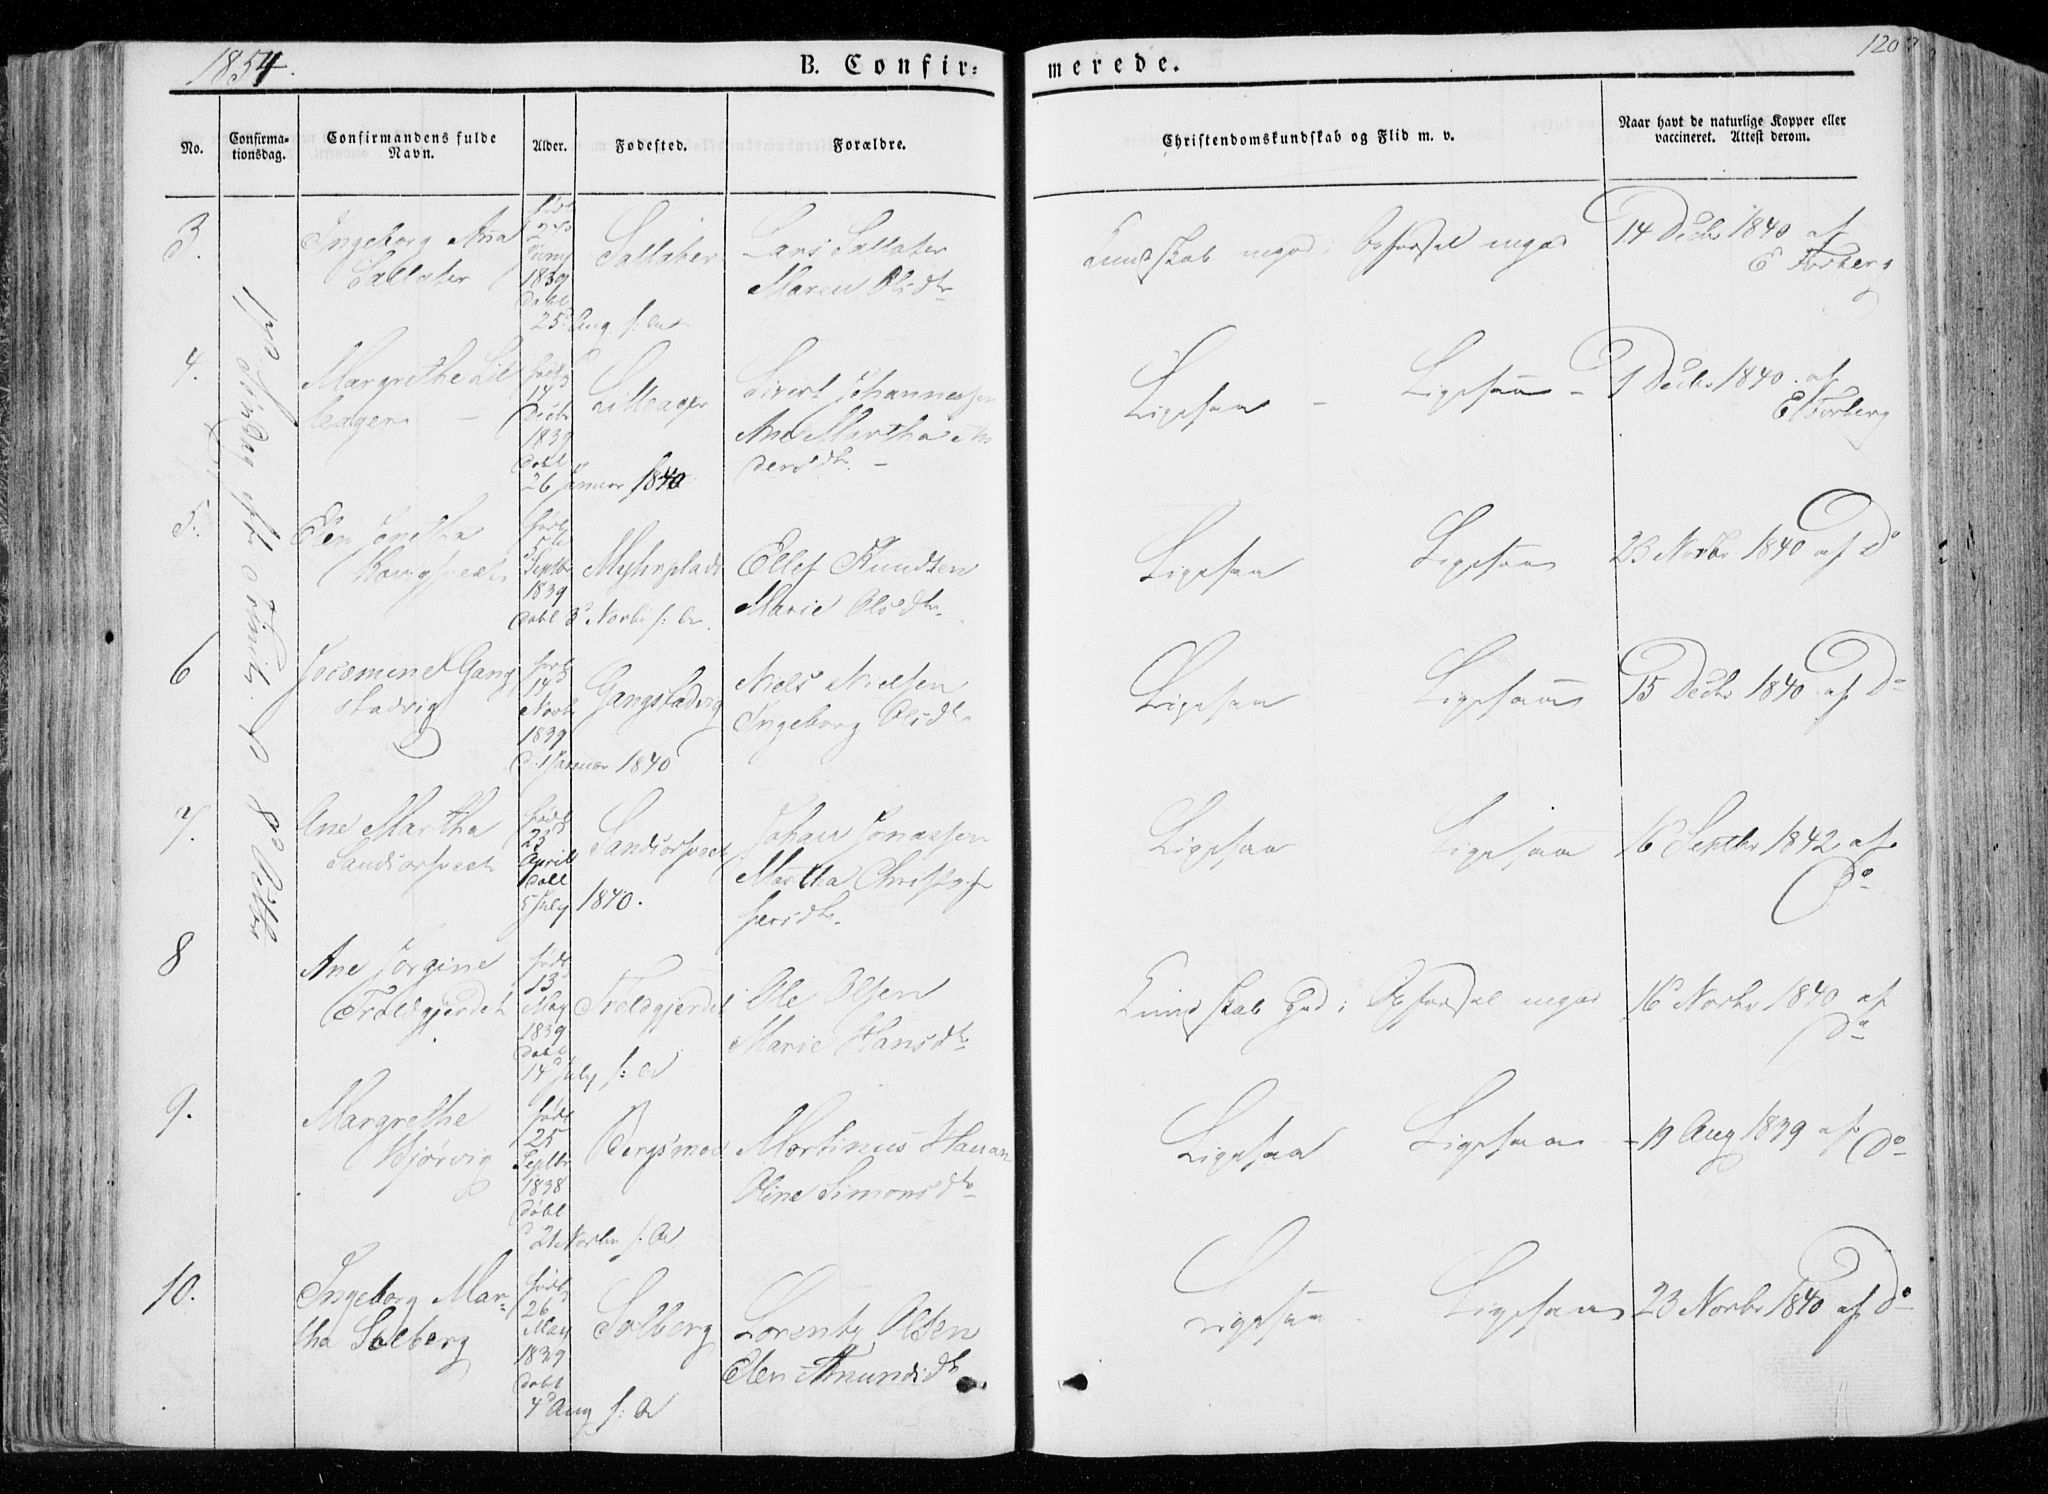 1854.
B. Confir-
merede.
120
No.
Confirma-
tionsdag.
Confirmandens fulde
Navn.
Alder.
Fødested.
Forældre.
Christendomskundskab og Flid m. v.
Naar havt de naturlige Kopper eller
vaccineret. Attest derom.
3.
Ingeborg Ana
født
2
Juny
1839
døbt
25 Aug. s: A
Lars
Maren Olsdtr
Kundskab megod, Opførsel megod
14 Decbr 1840 af
E Forberg
4.
Margrethe Lil
leager
født
14
Decbr
1839
døbt
26 Januar 1840
Lilleager
Sivert Johannessen
Ane Martha An
dersdtr.
Ligesaa
Ligesaa
9 Decbr 1840 af
E Forberg
5.
Elen
født
5te
Septbr
1839
døbt 3 Novbr s: A
Myhrplads
Ellef Knudsen
Marie Olsdtr.
Ligesaa
Ligesaa
23 Novbr 1840 af Do
6
Gang
stadvig
født
14
Novbr
1839
d. 1 Januar 1840
Gangstadvig
Niels Nielsen
Ingeborg Olsdtr
Ligesaa
Ligesaa
15 Decbr 1840 af Do
7.
Ane Martha
født
23
April
døbt
5 July
1840.
Johan Jonassen
Martha Christof
fersdtr.
Ligesaa
Ligesaa
16 Septbr 1842 af
Do
8
Ane Jørgine
Troldgjerdet
født
13
May
1839
døbt
14 July s: A
Troldgjerdet
Ole Olsen
Marie Hansdtr
Kundskab god; Opførsel megod
16 Novbr 1840 af
Do
9.
Margrethe
Hjørvig
født
25
Septbr
1838
døbt
21 Novbr s: A
Bergsmoe
Martinus
Oline Simonsdtr
Ligesaa
Ligesaa
19 Aug 1839 af Do
10.
Ingeborg Mar-
tha Solberg
født
26
May
1839
døbt
4 Aug s: A
Solberg
Lorents Olsen
Elen Amundsdtr
Ligesaa
Ligesaa
23 Novbr 1840 af Do